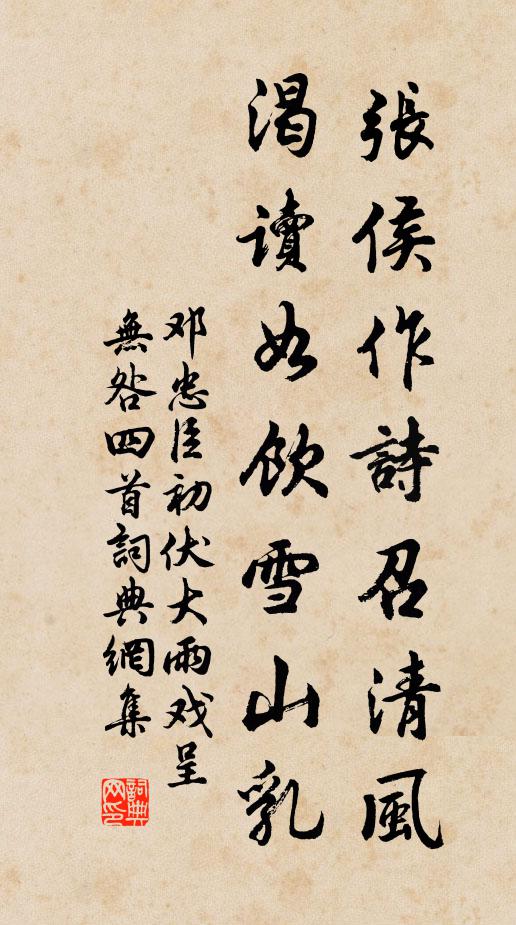 張侯作詩召清風
渴讀如飲雪山乳
邓忠臣初伏大雨戏呈
無咎四首詞典網集
詞典
网印